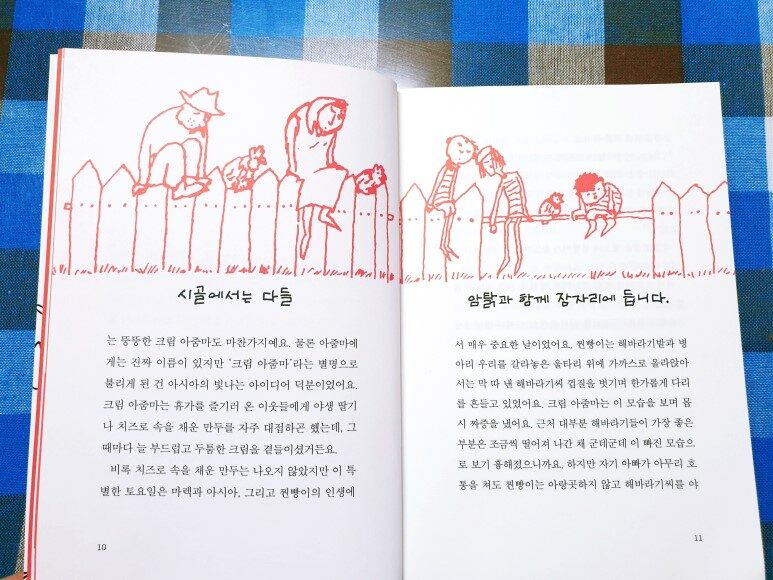 시골에서는 다들
는 뚱뚱한 크림 아줌마도 마찬가지예요. 물론 아줌마에
게는 진짜 이름이 있지만 ‘크림 아줌마’라는 별명으로
불리게 된 건 아시아의 빛나는 아이디어 덕분이었어요.
크림 아줌마는 휴가를 즐기러 온 이웃들에게 야생 딸기
나 치즈로 속을 채운 만두를 자주 대접하곤 했는데, 그
때마다 늘 부드럽고 두툼한 크림을 곁들이셨거든요.
비록 치즈로 속을 채운 만두는 나오지 않았지만 이 특
별한 토요일은 마렉과 아시아, 그리고 찐빵이의 인생에
10
암탉과 함께 잠자리에 듭니다.
서 매우 중요한 날이었어요. 찐빵이는 해바라기밭과 병
아리 우리를 갈라놓은 울타리 위에 가까스로 올라앉아
서는 막 따 낸 해바라기씨 껍질을 벗기며 한가롭게 다리
를 흔들고 있었어요. 크림 아줌마는 이 모습을 보며 몹
시 짜증을 냈어요. 근처 대부분 해바라기들이 가장 좋은
부분은 조금씩 떨어져 나간 채 군데군데 이 빠진 모습으
로 보기 흉해졌으니까요. 하지만 자기 아빠가 아무리 호
통을 쳐도 찐빵이는 아랑곳하지 않고 해바라기씨를 야
11